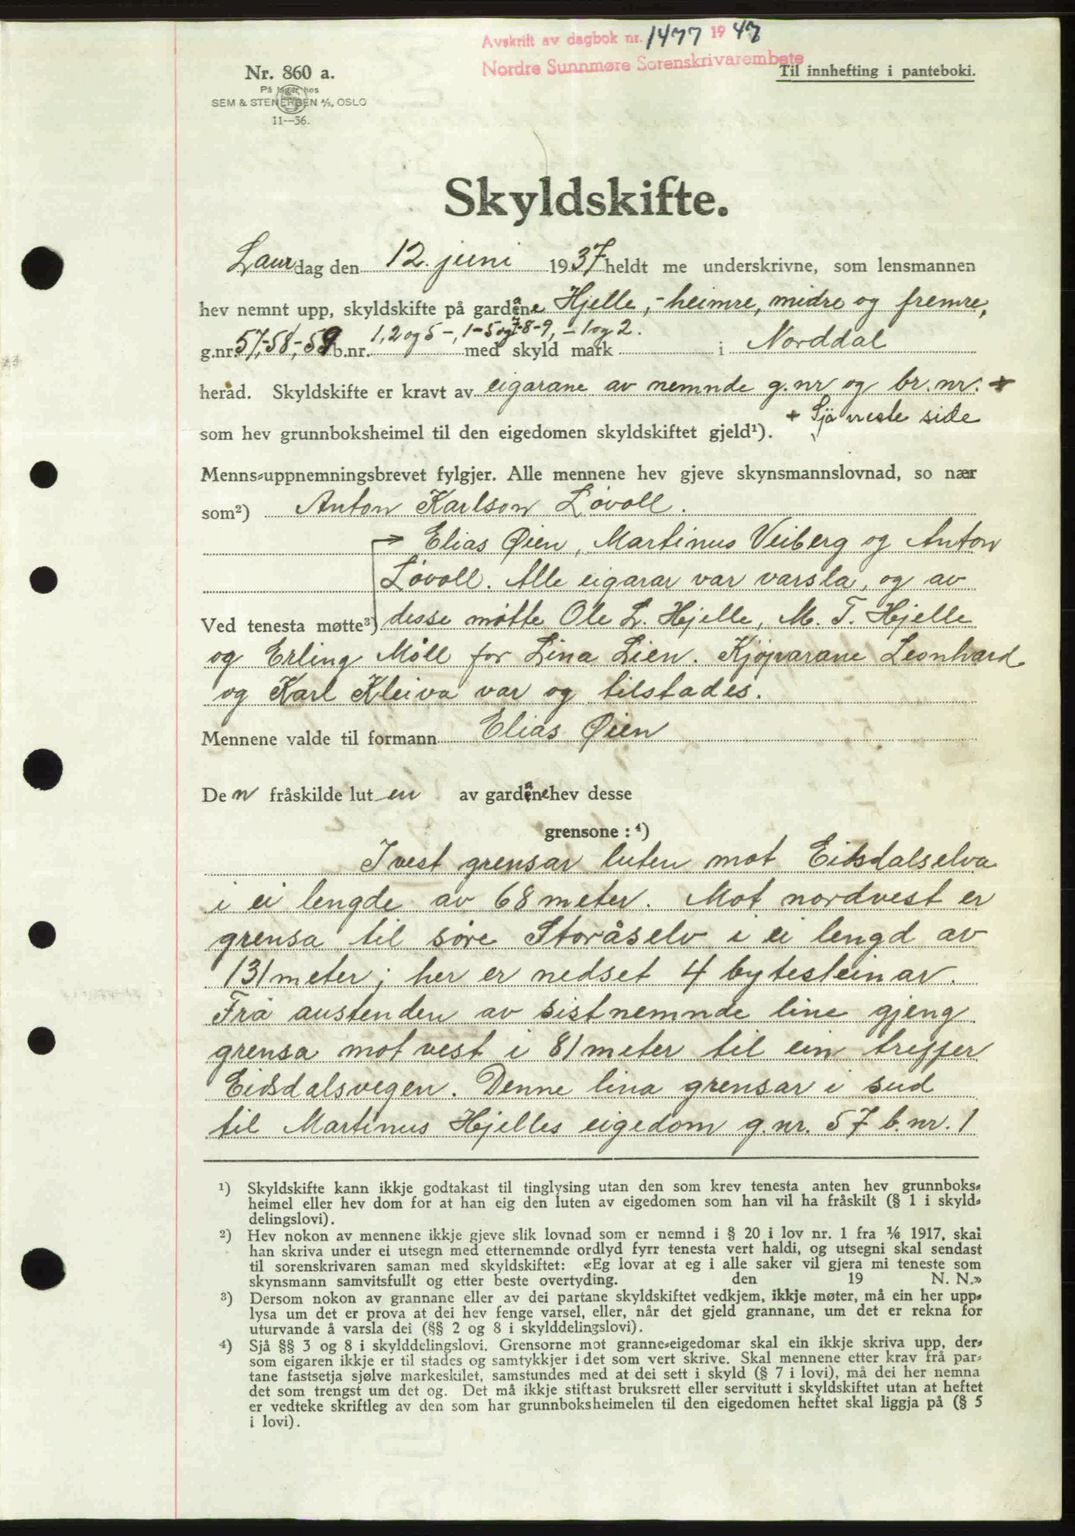 Avskrift av dagbok nr. 1477 19 47
Nordre Sunnmøre Sorenskrivarembete
Nr. 860 a.
På lager hos
SEM & STENERSEN A/S, OSLO
11—36.
Til innhefting i panteboki.
Skyldskifte.
Laurdag den 12. juni 1937 heldt me underskrivne, som lensmannen
hev nemnt upp, skyldskifte på gardane Hjelle, - heimre, midre og fremre,
g.nr. 57,-58,-59 b.nr. 1,2 og 5 -, 1-5 og 7-8-9, - 1 og 2. med skyld mark i Norddal
herad. Skyldskifte er kravt av eigarane av nemnde g.nr og br.nr. +
som hev grunnboksheimel til den eigedomen skyldskiftet gjeld¹). + Sjå neste side
Menns-uppnemningsbrevet fylgjer. Alle mennene hev gjeve skynsmannslovnad, so nær
som²) Anton Karlson Løvoll.
Elias Øien, Martinus Veiberg og Anton
Løvoll. Alle eigarar var varsla, og av
Ved tenesta møtte³) desse møtte Ole L. Hjelle, M. T. Hjelle
og Erling Møll for Lina Lien. Kjøparane Leonhard
og Karl Kleiva var og tilstades.
Mennene valde til formann Elias Øien
Den fråskilde lut en av gardane hev desse
grensone : ⁴)
I vest grensar luten mot Eidsdalselva
i ei lengde av 68 meter. Mot nordvest er
grensa til søre Storåselv i ei lengd av
131 meter; her er nedset 4 bytesteinar.
Frå austenden av sistnemnde line gjeng
grensa mot vest i 81 meter til ein treffer
Eidsdalsvegen. Denne lina grensar i sud
til Martinus Hjelles eigedom g.nr. 57 b.nr. 1
¹) Skyldskifte kann ikkje godtakast til tinglysing utan den som krev tenesta anten hev grunnboks-
heimel eller hev dom for at han eig den luten av eigedomen som han vil ha fråskilt (§ 1 i skyld-
delingslovi).
²) Hev nokon av mennene ikkje gjeve slik lovnad som er nemnd i § 20 i lov nr. 1 fra 1/6 1917, skal
han skriva under ei utsegn med etternemnde ordlyd fyrr tenesta vert haldi, og utsegni skal sendast
til sorenskrivaren saman med skyldskiftet: «Eg lovar at eg i alle saker vil gjera mi teneste som
skynsmann samvitsfullt og etter beste overtyding. den 19 N. N.»
³) Dersom nokon av grannane eller av dei partane skyldskiftet vedkjem, ikkje møter, må ein her upp-
lysa um det er prova at dei hev fenge varsel, eller, når det gjeld grannane, um det er rekna for
uturvande å varsla dei (§§ 2 og 8 i skylddelingslovi).
⁴) Sjå §§ 3 og 8 i skylddelingslovi. Grensorne mot granne-eigedomar skal ein ikkje skriva upp, der-
som eigaren ikkje er til stades og samtykkjer i det som vert skrive. Skal mennene etter krav frå par-
tane fastsetja sjølve markeskilet, samstundes med at dei sett i skyld (§ 7 i lovi), må dei her nemna
det som trengst um det og. Det må ikkje stiftast bruksrett eller servitutt i skyldskiftet utan at heftet
er vedteke skriftleg av den som har grunnboksheimelen til den eigedomen heftet skal liggja på (§ 5
i lovi).